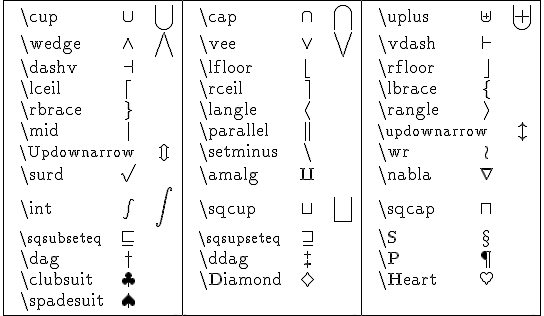 \cup ∪ ⋃ \cap ∩ ⋂ \uplus ⊎ ⨄
\wedge ∧ ⋀ \vee ∨ ⋁ \vdash ⊢
\dashv ⊣ \lfloor ⌊ \rfloor ⌋
\lceil ⌈ \rceil ⌉ \lbrace {
\rbrace } \langle ⟨ \rangle ⟩
\mid | \parallel ∥ \updownarrow ↕
\Updownarrow ⇕ \setminus \ \wr ≀
\surd √ \amalg ⨿ \nabla ∇
\int ∫ ∫ \sqcup ⊔ ⨆ \sqcap ⊓
\sqsubseteq ⊑ \sqsupseteq ⊒ \S §
\dag † \ddag ‡ \P ¶
\clubsuit ♣ \Diamond ♢ \Heart ♡
\spadesuit ♠